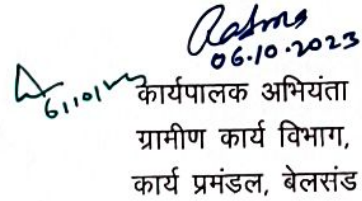 06.10.2023
कार्यपालक अभियंता
ग्रामीण कार्य विभाग,
कार्य प्रमंडल, बेलसंड